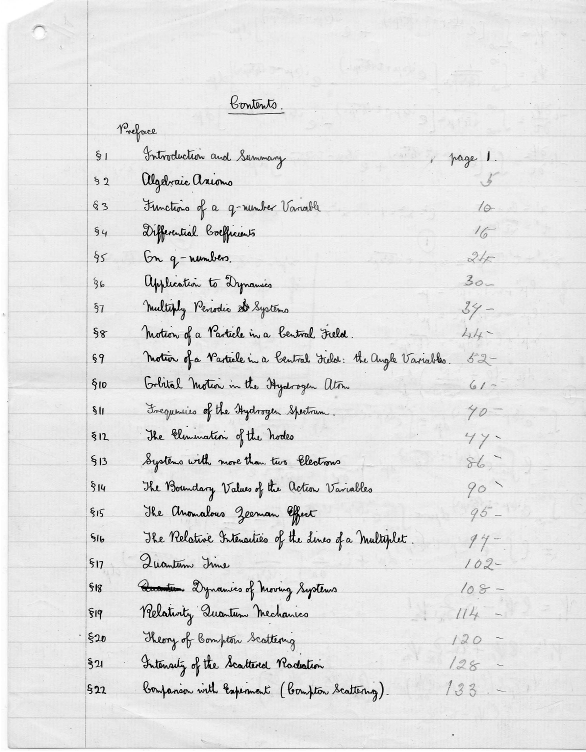 Contents.
Preface
§1 Introduction and Summary page 1.
§2 Algebraic Axioms 5
§3 Functions of a q-number Variable 10
§4 Differential Coefficients 16
§5 On q-numbers. 24-
§6 Application to Dynamics 30-
§7 Multiply Periodic Systems 37-
§8 Motion of a Particle in a Central Field. 44-
§9 Motion of a Particle in a Central Field: the Angle Variables. 52-
§10 Orbital Motion in the Hydrogen Atom 61-
§11 Frequencies of the Hydrogen Spectrum. 70-
§12 The Elimination of the Nodes 77-
§13 Systems with more than two Electrons 86-
§14 The Boundary Values of the Action Variables 90-
§15 The Anomalous Zeeman Effect 95-
§16 The Relative Intensities of the Lines of a Multiplet. 97-
§17 Quantum Time 102-
§18 Quantum Dynamics of Moving Systems 108-
§19 Relativity Quantum Mechanics 114-
§20 Theory of Compton Scattering 120-
§21 Intensity of the Scattered Radiation 128-
§22 Comparison with Experiment (Compton Scattering). 133-